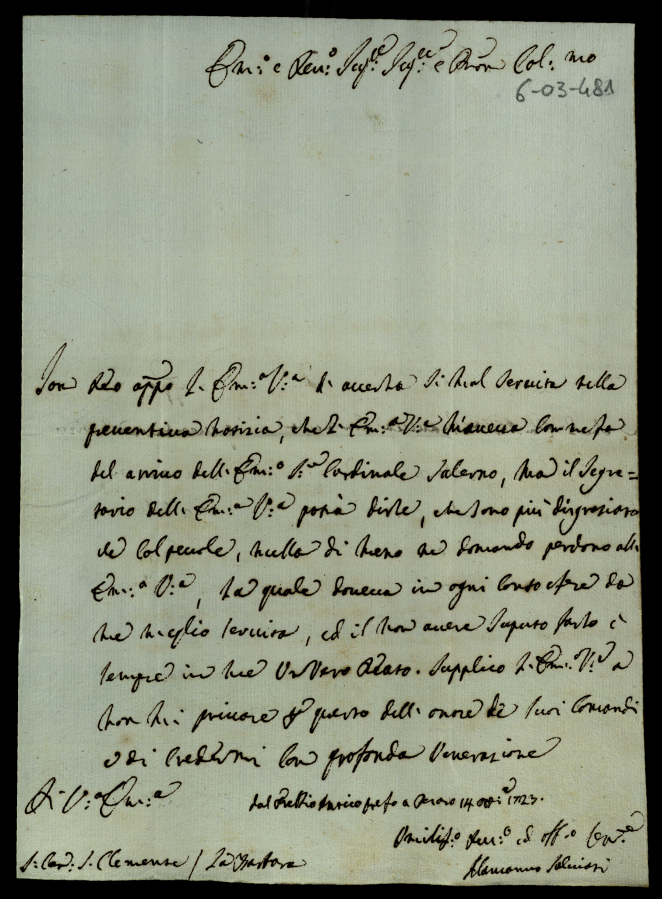 Em.o e Rev.o Sig.re Sig.re e Pron Col: mo
6-03-481
Son Reo appo l' Em.a V.a di averla sì mal servita nella
preventiva notizia, che l' Em.a V.a haveva commessa
del arrivo dell' Em.o S.r Cardinale Salerno, ma il Segre=
tario dell' Em.a V.a potrà dirle, che sono più disgraziato
che colpevole, nulla di meno ne domando perdono all'
Em.a V.a, la quale doveva in ogni conto essere da
me meglio servita, ed il non avere saputo farlo è
sempre in me un vero Reato. Supplico l' Em.a V.a a
non mi privare per questo dell' onore de suoi comandi
e di credermi con profonda venerazione
Di V.a Em.a
dal 14 1723.
Umiliss.o Dev.o ed obb.o Serv.re
S: Card: S. Clemente / La Bastora
Alamanno Salviati